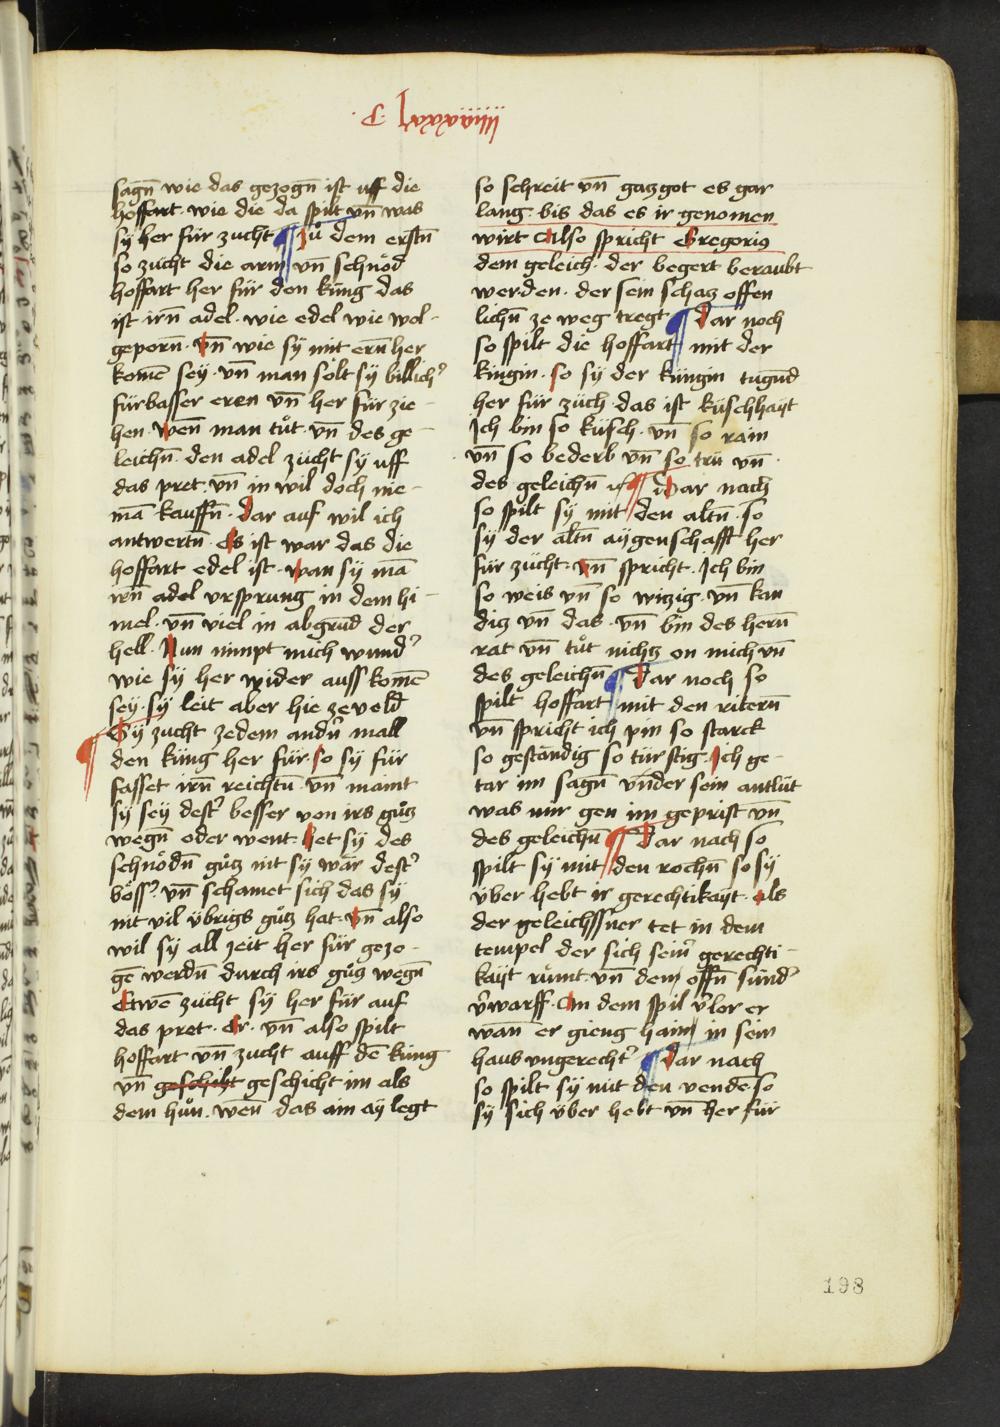 ·C· lxxxviiij
sagn̄ wie das gezogn̄ ist uff die
hoffart· wie die da spilt vn̄ was
sÿ her für zucht ¶ Zů dem erstn̄
so zücht die arm vn̄ schnöd
hoffart her für den küng das
ist irn̄ adel· wie edel wie wol-
geporn̄· vn̄ wie sÿ mit ern̄ her
komē sey· vn̄ man sölt sÿ billich᾽
fürbasser eren vn̄ her für zie-
hen· wen̄ man tůt· vn̄ des ge-
leichn̄· den adel zücht sÿ uff
das pret· vn̄ in wil doch nie-
mā kauffn̄· Dar auf wil ich
antwertn̄· Es ist war das die
hoffart edel ist· wan sÿ mā
irn̄ adel vrsprung in dem hi-
mel· vn̄ viel in abgrūd der
hell· Nun nimpt mich wund᾽
wie sÿ her wider auss komē
sey· sÿ leit aber hie ze veld
¶ Sÿ zucht zedem andn̄ mall
den küng her für· so sÿ für
fasset irn̄ reichtū· vn̄ maint
sÿ sey dest᾽ besser von irs gůtz
wegn̄ oder went· Het sÿ des
schnödn̄ gůtz nit sÿ wär dest᾽
böss᾽· vn̄ schamet sich das sÿ
nit vil übrigs gůtz hat· vn̄ also
wil sÿ all zeit her für gezo-
gē werdn̄ durch irs gůtz wegn̄
Etwē zücht sÿ her für auf
das pret· Er· vn̄ also spilt
hoffart vn̄ zucht auff dē küng
vn̄ geschiht geschicht im als
dem hůn· wen̄ das ain aÿ legt
so schreit vn̄ gazgot es gar
lang· bis das es ir genomen
wirt Also spricht Gregorius
dem geleich· der begert beraubt
werden· der sein schatz offen
lichn̄ ze weg tregt ¶ Dar noch
so spilt die hoffart mit der
küngin· so sÿ der küngin tugūd
her für züch· das ist küschhaÿt
Ich bin so küsch· vn̄ so rain
vn̄ so bederb vn̄ so trü vn̄
des geleichn̄ ¶ Dar nach
so spilt sÿ mit den altn̄· so
sÿ der altn̄ aÿgenschafft her
für zücht· vn̄ spricht· Ich bin
so weis vn̄ so witzig· vn̄ kan
ditz vn̄ das· vn̄ bin des hern̄
rat vn̄ tůt nichtz on mich vn̄
des geleichn̄ ¶ Dar noch so
spilt hoffart mit den ritern̄
vn̄ spricht ich pin so starck
so gestandig so türstig· Ich ge-
tar im sagn̄ vnder sein antlüt
was mir gen im geprist vn̄
des geleichn̄ ¶ Dar nach so
spilt sÿ mit den rochn̄ so sÿ
über hebt ir gerechtikaÿt· als
der geleichssner tet in dem
tempel der sich sein᾽ gerechti-
kaÿt růmt· vn̄ dem offn̄ sünd᾽
v᾽warff· An dem spil v᾽lor er
wan̄ er gieng haim in sein
haus vngerecht᾽ ¶ Dar nach
so spilt sÿ mit den venden so
sÿ sich über hebt vn̄ her für
198